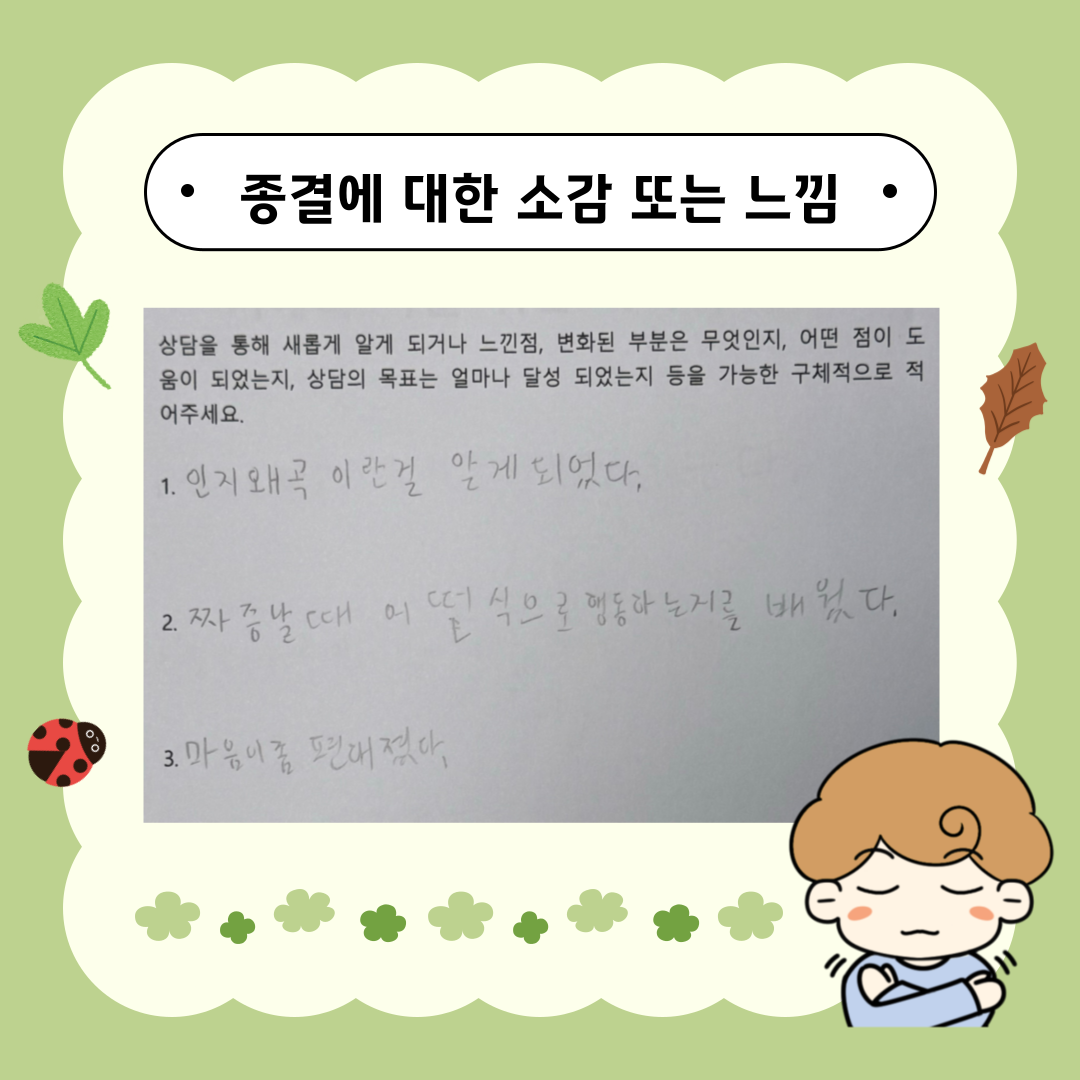 • 종결에 대한 소감 또는 느낌 •
상담을 통해 새롭게 알게 되거나 느낀점, 변화된 부분은 무엇인지, 어떤 점이 도
움이 되었는지, 상담의 목표는 얼마나 달성 되었는지 등을 가능한 구체적으로 적
어주세요.
1. 인지왜곡 이란걸 알게되었다.
2. 짜증날때 어떨 식으로 행동하는지를 배웠다.
3. 마음이좀 편해졌다.